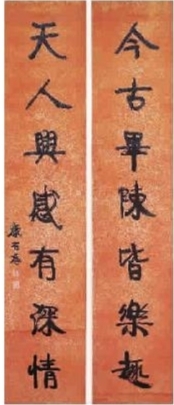 今古畢陳皆樂趣
天人興感有深情
康有為